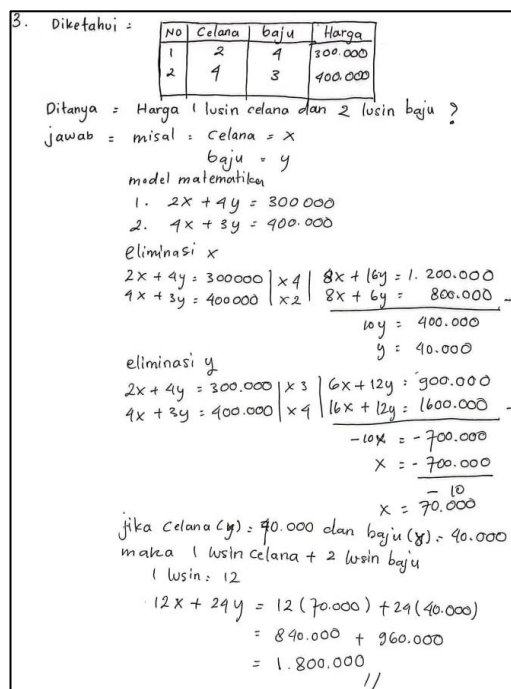 3. Diketahui =
No Celana baju Harga
1 2 4 300.000
2 4 3 400.000
Ditanya = Harga 1 lusin celana dan 2 lusin baju ?
jawab = misal = Celana = x
baju = y
model matematika
1. 2x + 4y = 300 000
2. 4x + 3y = 400.000
eliminasi x
2x + 4y = 300000 | x 4 | 8x + 16y = 1. 200.000
4x + 3y = 400000 | x 2 | 8x + 6y = 800.000 -
10y = 400.000
y = 40.000
eliminasi y
2x + 4y = 300.000 | x 3 | 6x + 12y = 900.000
4x + 3y = 400.000 | x 4 | 16x + 12y = 1600.000 -
-10x = -700.000
x = - 700.000
- 10
x = 70.000
jika celana = 70.000 dan baju = 40.000
maka 1 lusin celana + 2 lusin baju
1 lusin = 12
12x + 24y = 12 (70.000) + 24 (40.000)
= 840.000 + 960.000
= 1.800.000
//